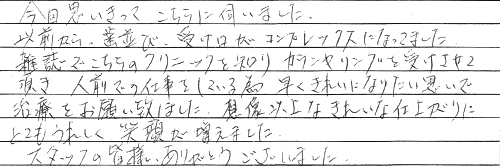 今回思いきって こちらに伺いました.
以前から、歯並び、受け口がコンプレックスになってました
雑誌でこちらのクリニックを知り カウンセリングを受けさせて
頂き 人前での仕事をしている為 早くきれいになりたい思いで
治療をお願い致しました. 想像以上なきれいな仕上がりに
とてもうれしく 笑顔が増えました.
スタッフの皆様、ありがとうございました.